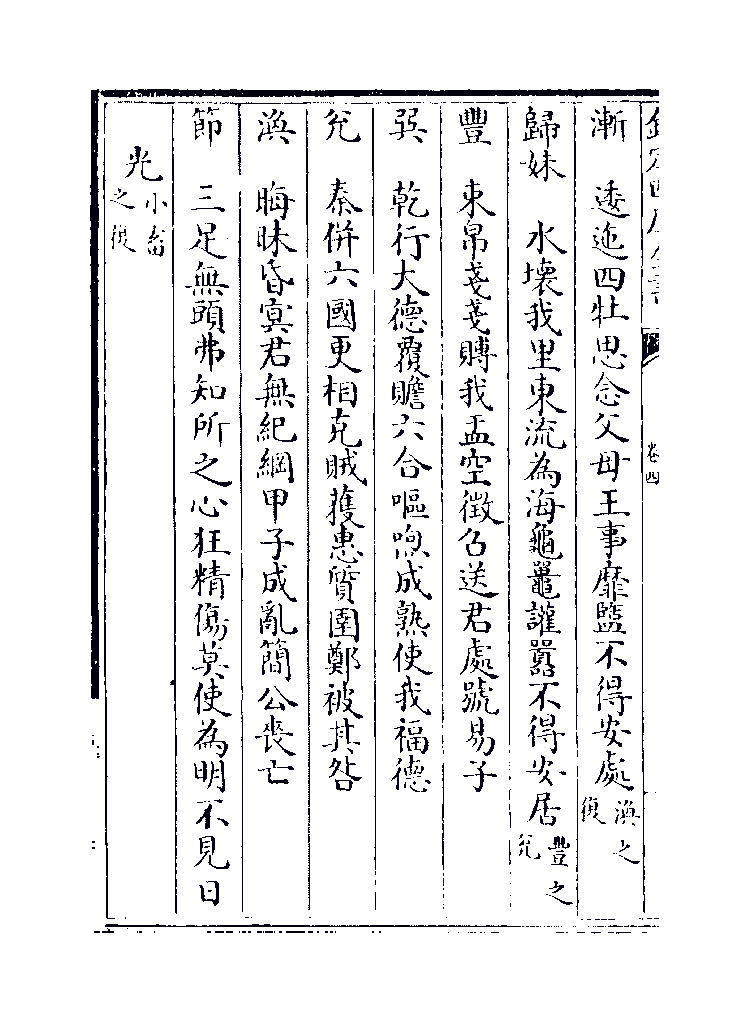 卷四
漸 逶迤四牡思念父母王事靡盬不得安處渙之復
歸妹 水壞我里東流為海龜鼉讙嚻不得安居豐之兊
豐 束帛戔戔賻我盂空徵召送君處號易子
巽 乾行大德覆贍六合嘔喣成熟使我福德
兊 秦併六國更相克賊獲惠質圉鄭被其咎
渙 晦昧昏寞君無紀綱甲子成亂簡公喪亡
節 三足無頭弗知所之心狂精傷莫使為明不見日
光小畜之復